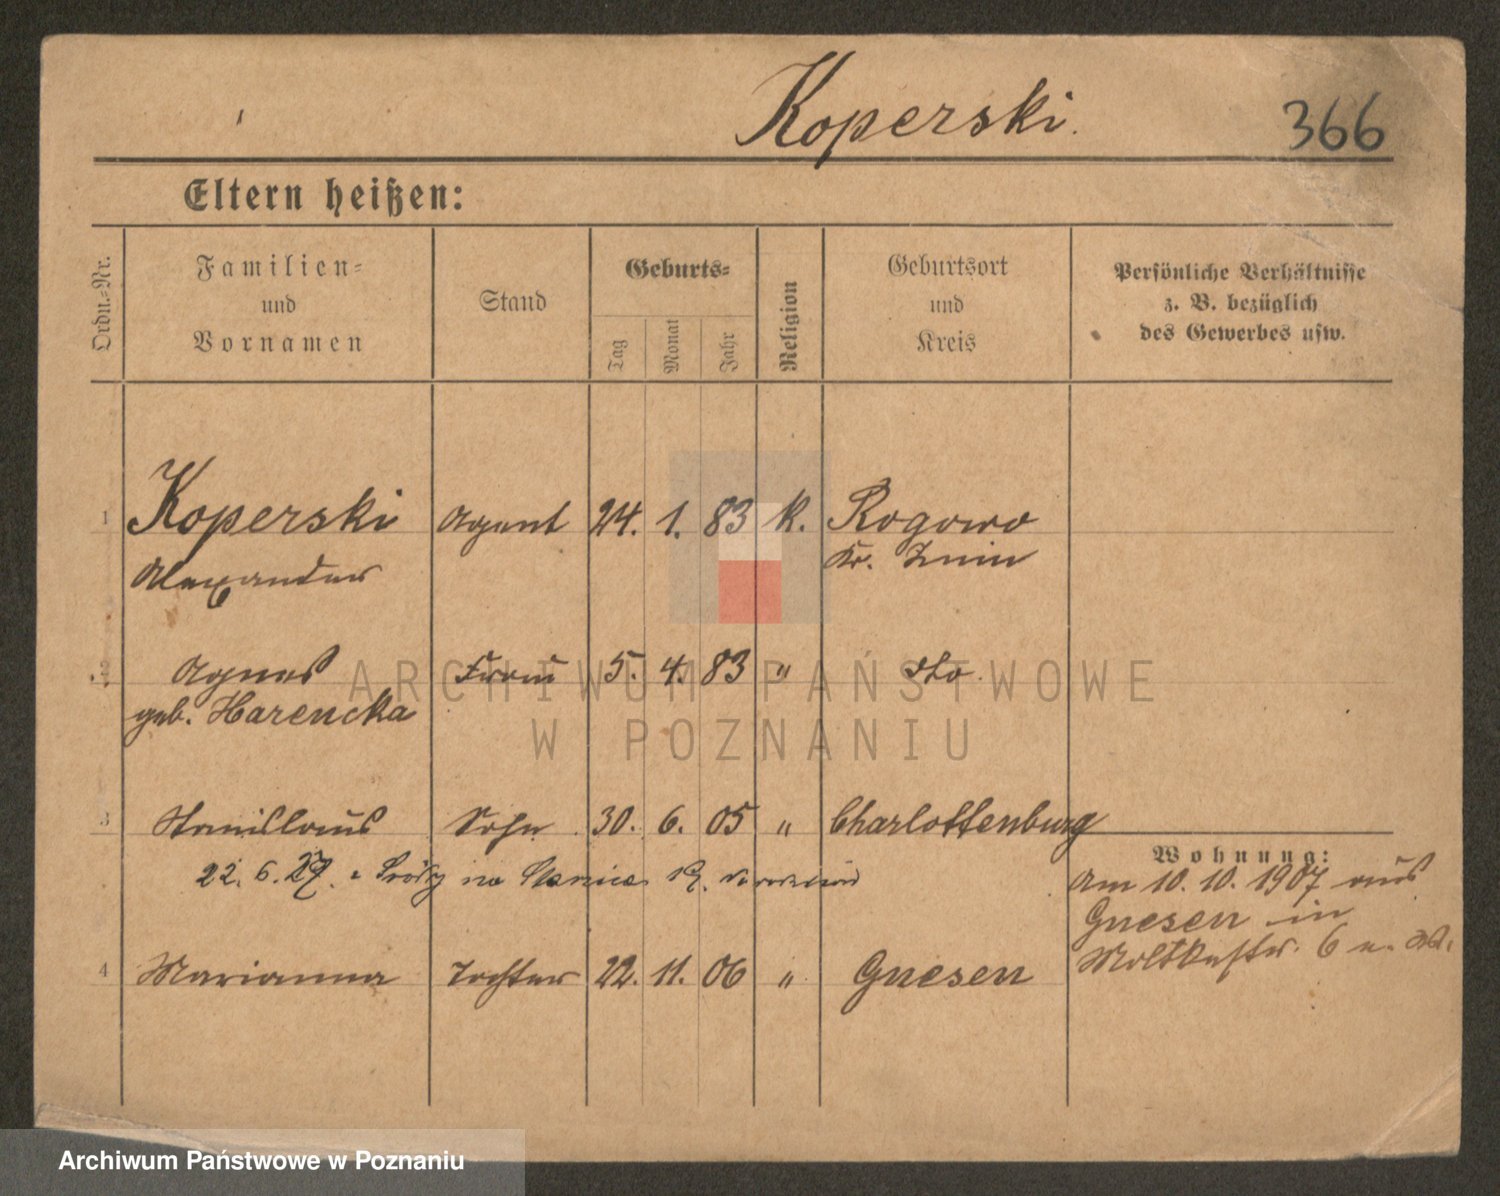 Koperski. 366
Eltern heißen:
Ordn.-Nr.
Familien-
und
Vornamen
Stand
Geburts-
Tag
Monat
Jahr
Religion
Geburtsort
und
Kreis
Persönliche Verhältnisse
z. B. bezüglich
des Gewerbes usw.
1 Koperski Agent 24. 1. 83 k. Rogowo
Alexander Kr. Znin
2 Agnes Frau 5. 4. 83 " dto.
geb. Harencka
3 Stanislaus Sohn 30. 6. 05 " Charlottenburg
22. 6. 27. na
4 Marianna Tochter 22. 11. 06 " Gnesen
Wohnung:
Am 10. 10. 1907 aus
Gnesen in
Moltkestr. 6
ARCHIWUM PAŃSTWOWE
W POZNANIU
Archiwum Państwowe w Poznaniu